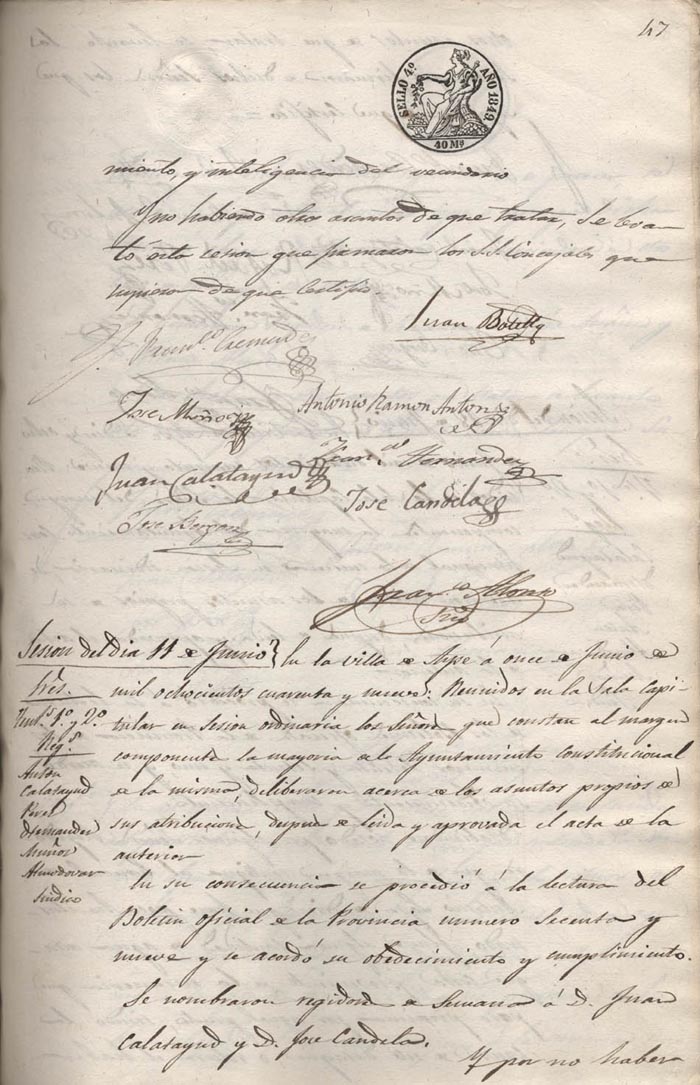 47
SELLO 4º AÑO 1849.
40 Mˢ
miento, y inteligencia del vecindario
Y no habiendo otros asuntos de que tratar, se levan
tó esta cesion que firmaron los S.S. Concejales que
supieron de que certifico.
Juan Botella
José Muñoz
Antonio Ramon Anton
Juan Calatayud
Franᶜᵒ Hernandez
Jose Candela
Franᶜᵒ Alonso
Srio
Sesion del dia 11 de Junio
Sres.
Tenˢ 1º y 2º
Regˢ
Anton
Calatayud
Perez
Hernandez
Muñoz
Almodovar
Sindico
En la villa de Aspe á once de Junio de
mil ochocientos cuarenta y nueve: Reunidos en la Sala Capi
tular en sesion ordinaria los Señores que constan al margen
componente la mayoria de el Ayuntamiento constitucional
de la misma, deliberaron acerca de los asuntos propios de
sus atribuciones, despues de leida y aprovada el acta de la
anterior
En su consecuencia se procedió á la lectura del
Boletin oficial de la Provincia numero Secenta y
nueve y se acordó su obedecimiento y cumplimiento.
Se nombraron regidores de Semana á D. Juan
Calatayud y D. Jose Candela.
Y por no haber